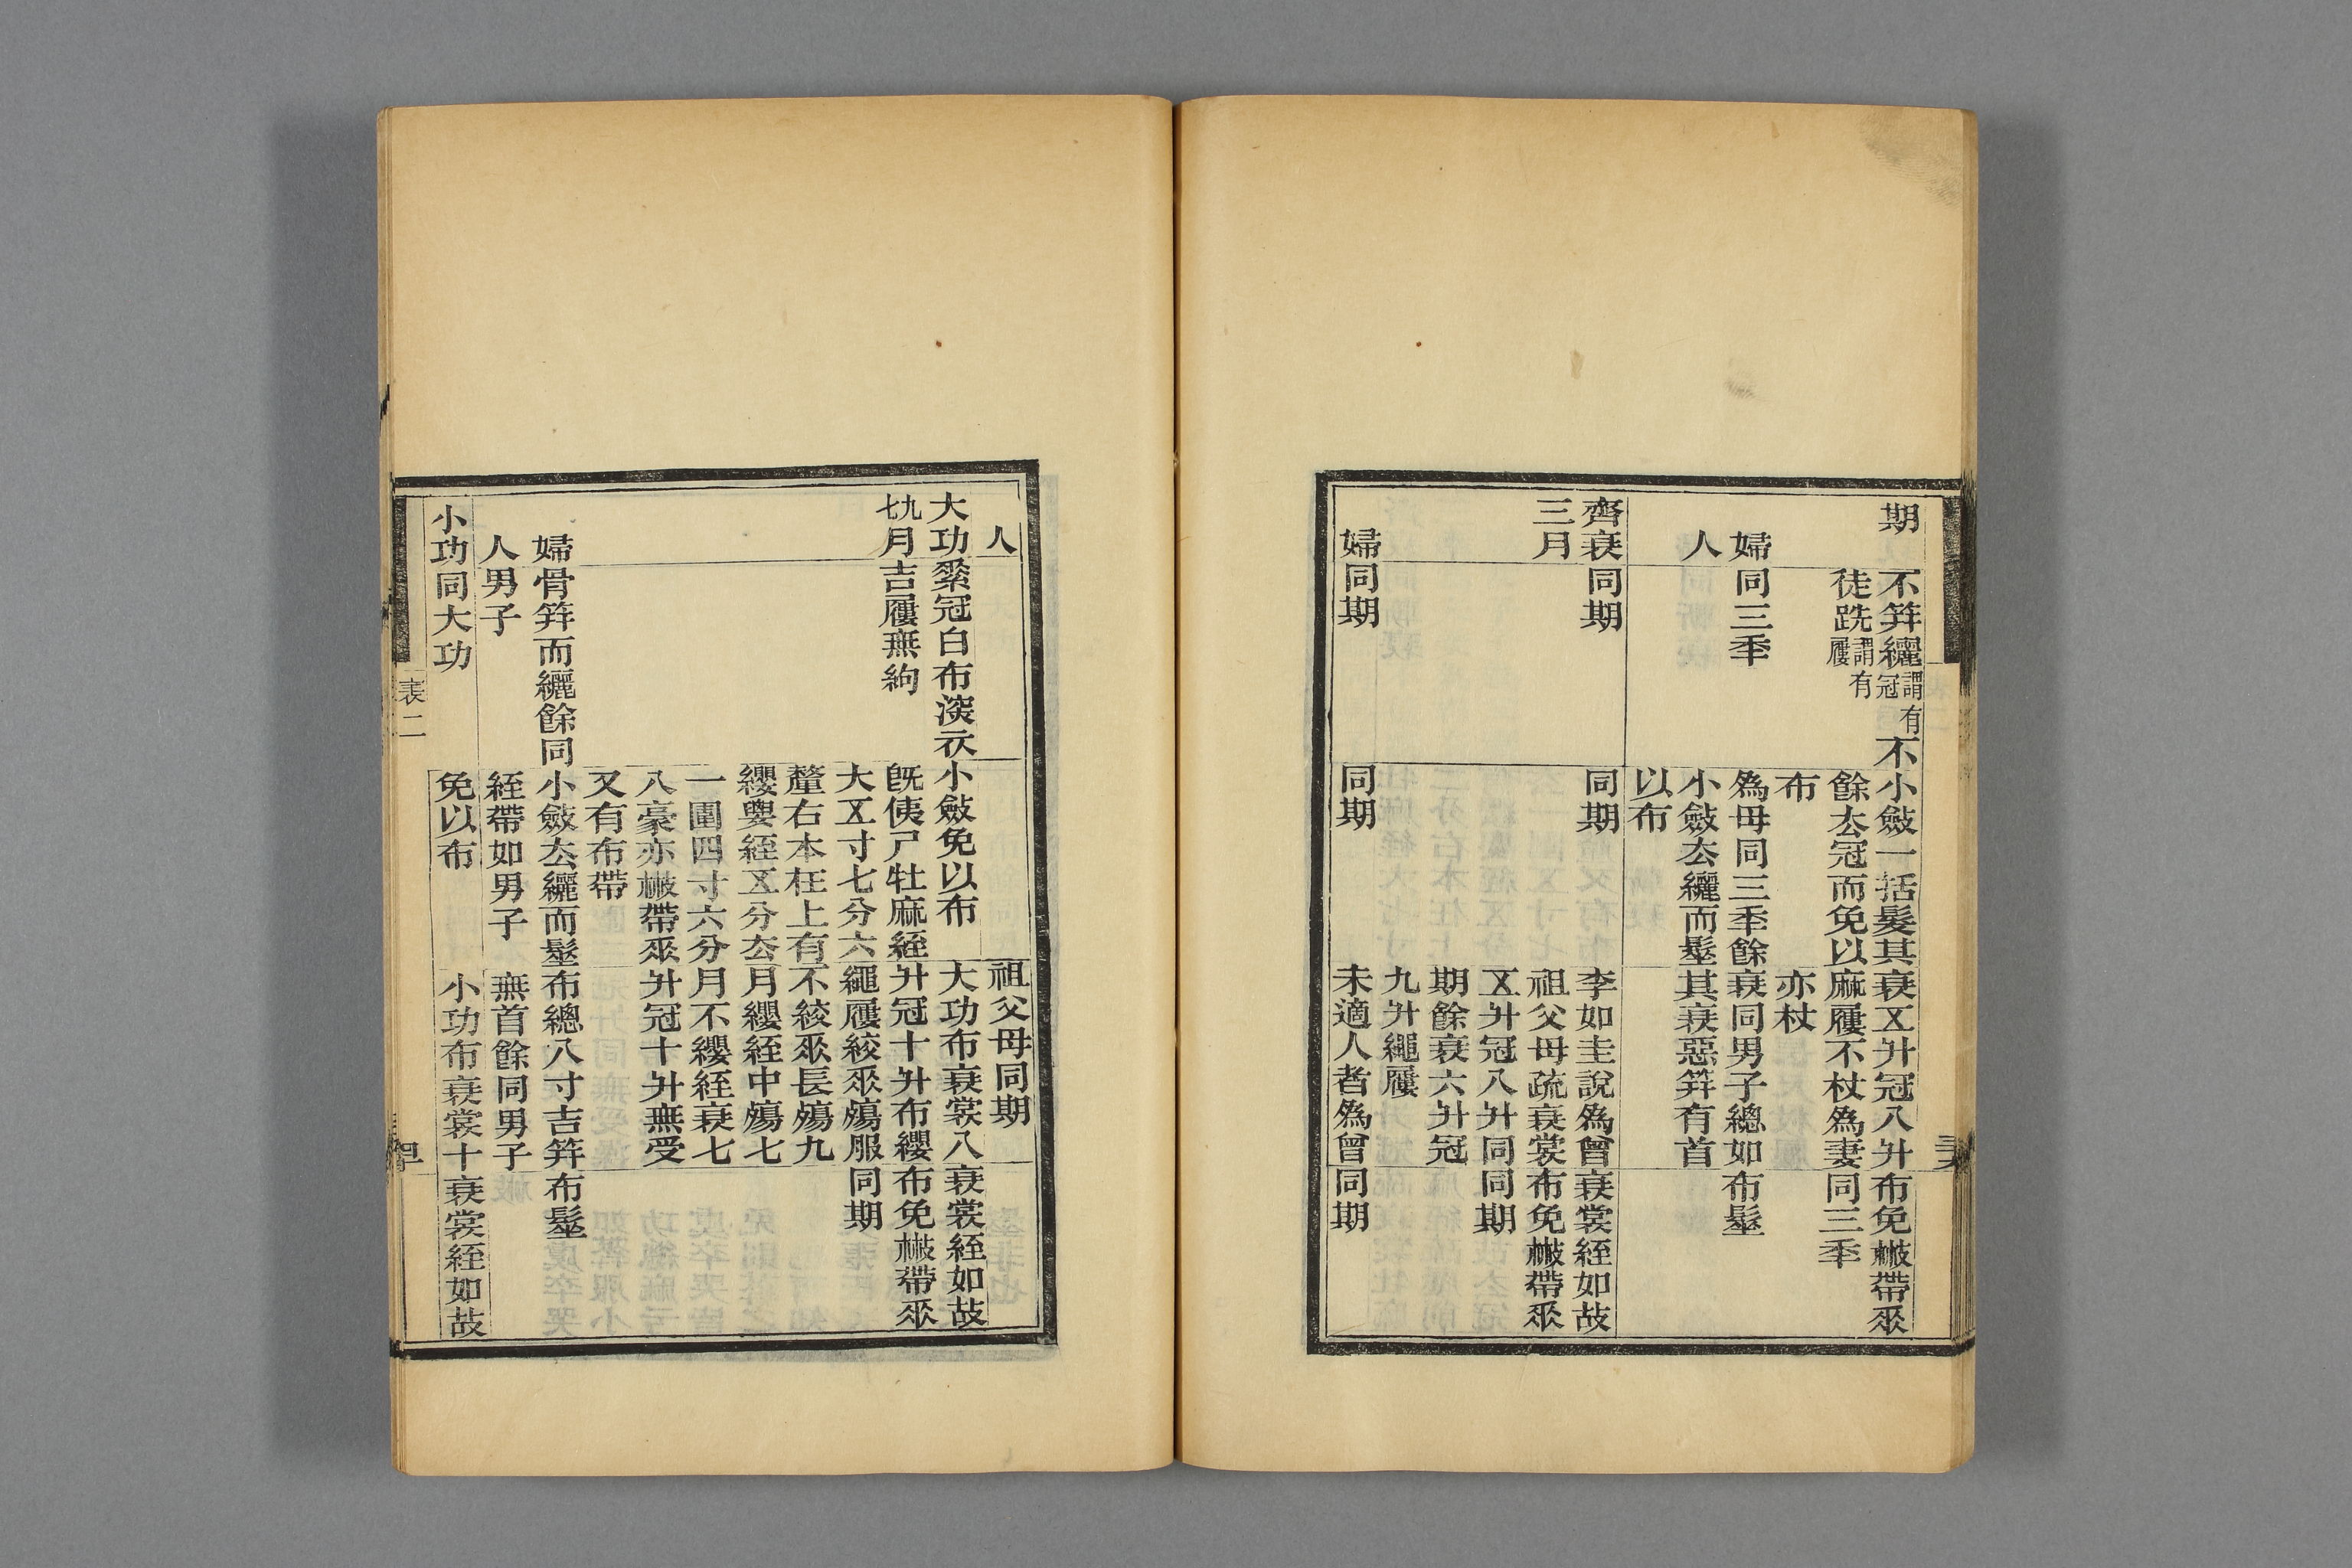 期
不筓纚謂有冠不
徒跣謂有屨
小斂一括髮其
餘厺冠而免以
布
衰𠄡升冠八升
麻屨不杖爲妻
亦杖
布免㪔帶𠂹
同三秊
婦
人
同三秊
爲母同三秊餘
小斂厺纚而髽
以布
衰同男子總如
其衰惡筓有首
布髽
齊衰
三月
同期
同期
李如圭說爲曾
祖父母疏衰裳
𠄡升冠八升同
期餘衰六升冠
九升繩屨
衰裳絰如故
布免㪔帶𠂹
同期
婦
同期
同期
未適人者爲曾
同期
人
祖父母同期
大功
九七月
素冠白布深衣
吉屨無絇
小斂免以布
既侇尸牡麻絰
大𠄡寸七分六
釐右本在上有
纓要絰𠄡分厺
一圍四寸六分
八豪亦㪔帶𠂹
又有布帶
大功布衰裳八
升冠十升布纓
繩屨絞𠂹殤服
不絞𠂹長殤九
月纓絰中殤七
月不纓絰衰七
升冠十升無受
衰裳絰如故
布免㪔帶𠂹
同期
婦
人
骨筓而纚餘同
男子
小斂厺纚而髽
絰帶如男子
布總八寸吉筓
無首餘同男子
布髽
小功
同大功
免以布
小功布衰裳十
衰裳絰如故
表二